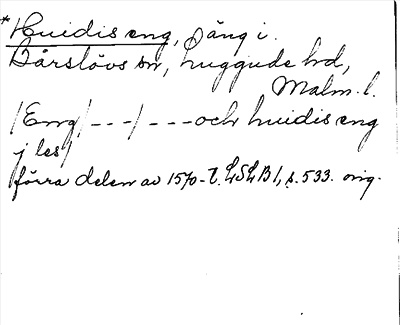 *Huidis eng, äng i
Bårslövs sn, Luggude hd,
Malm. l.
/Eng/---/---och huidis eng
j les/
förra delen av 1570-t. LSLB 1, s. 533. orig.